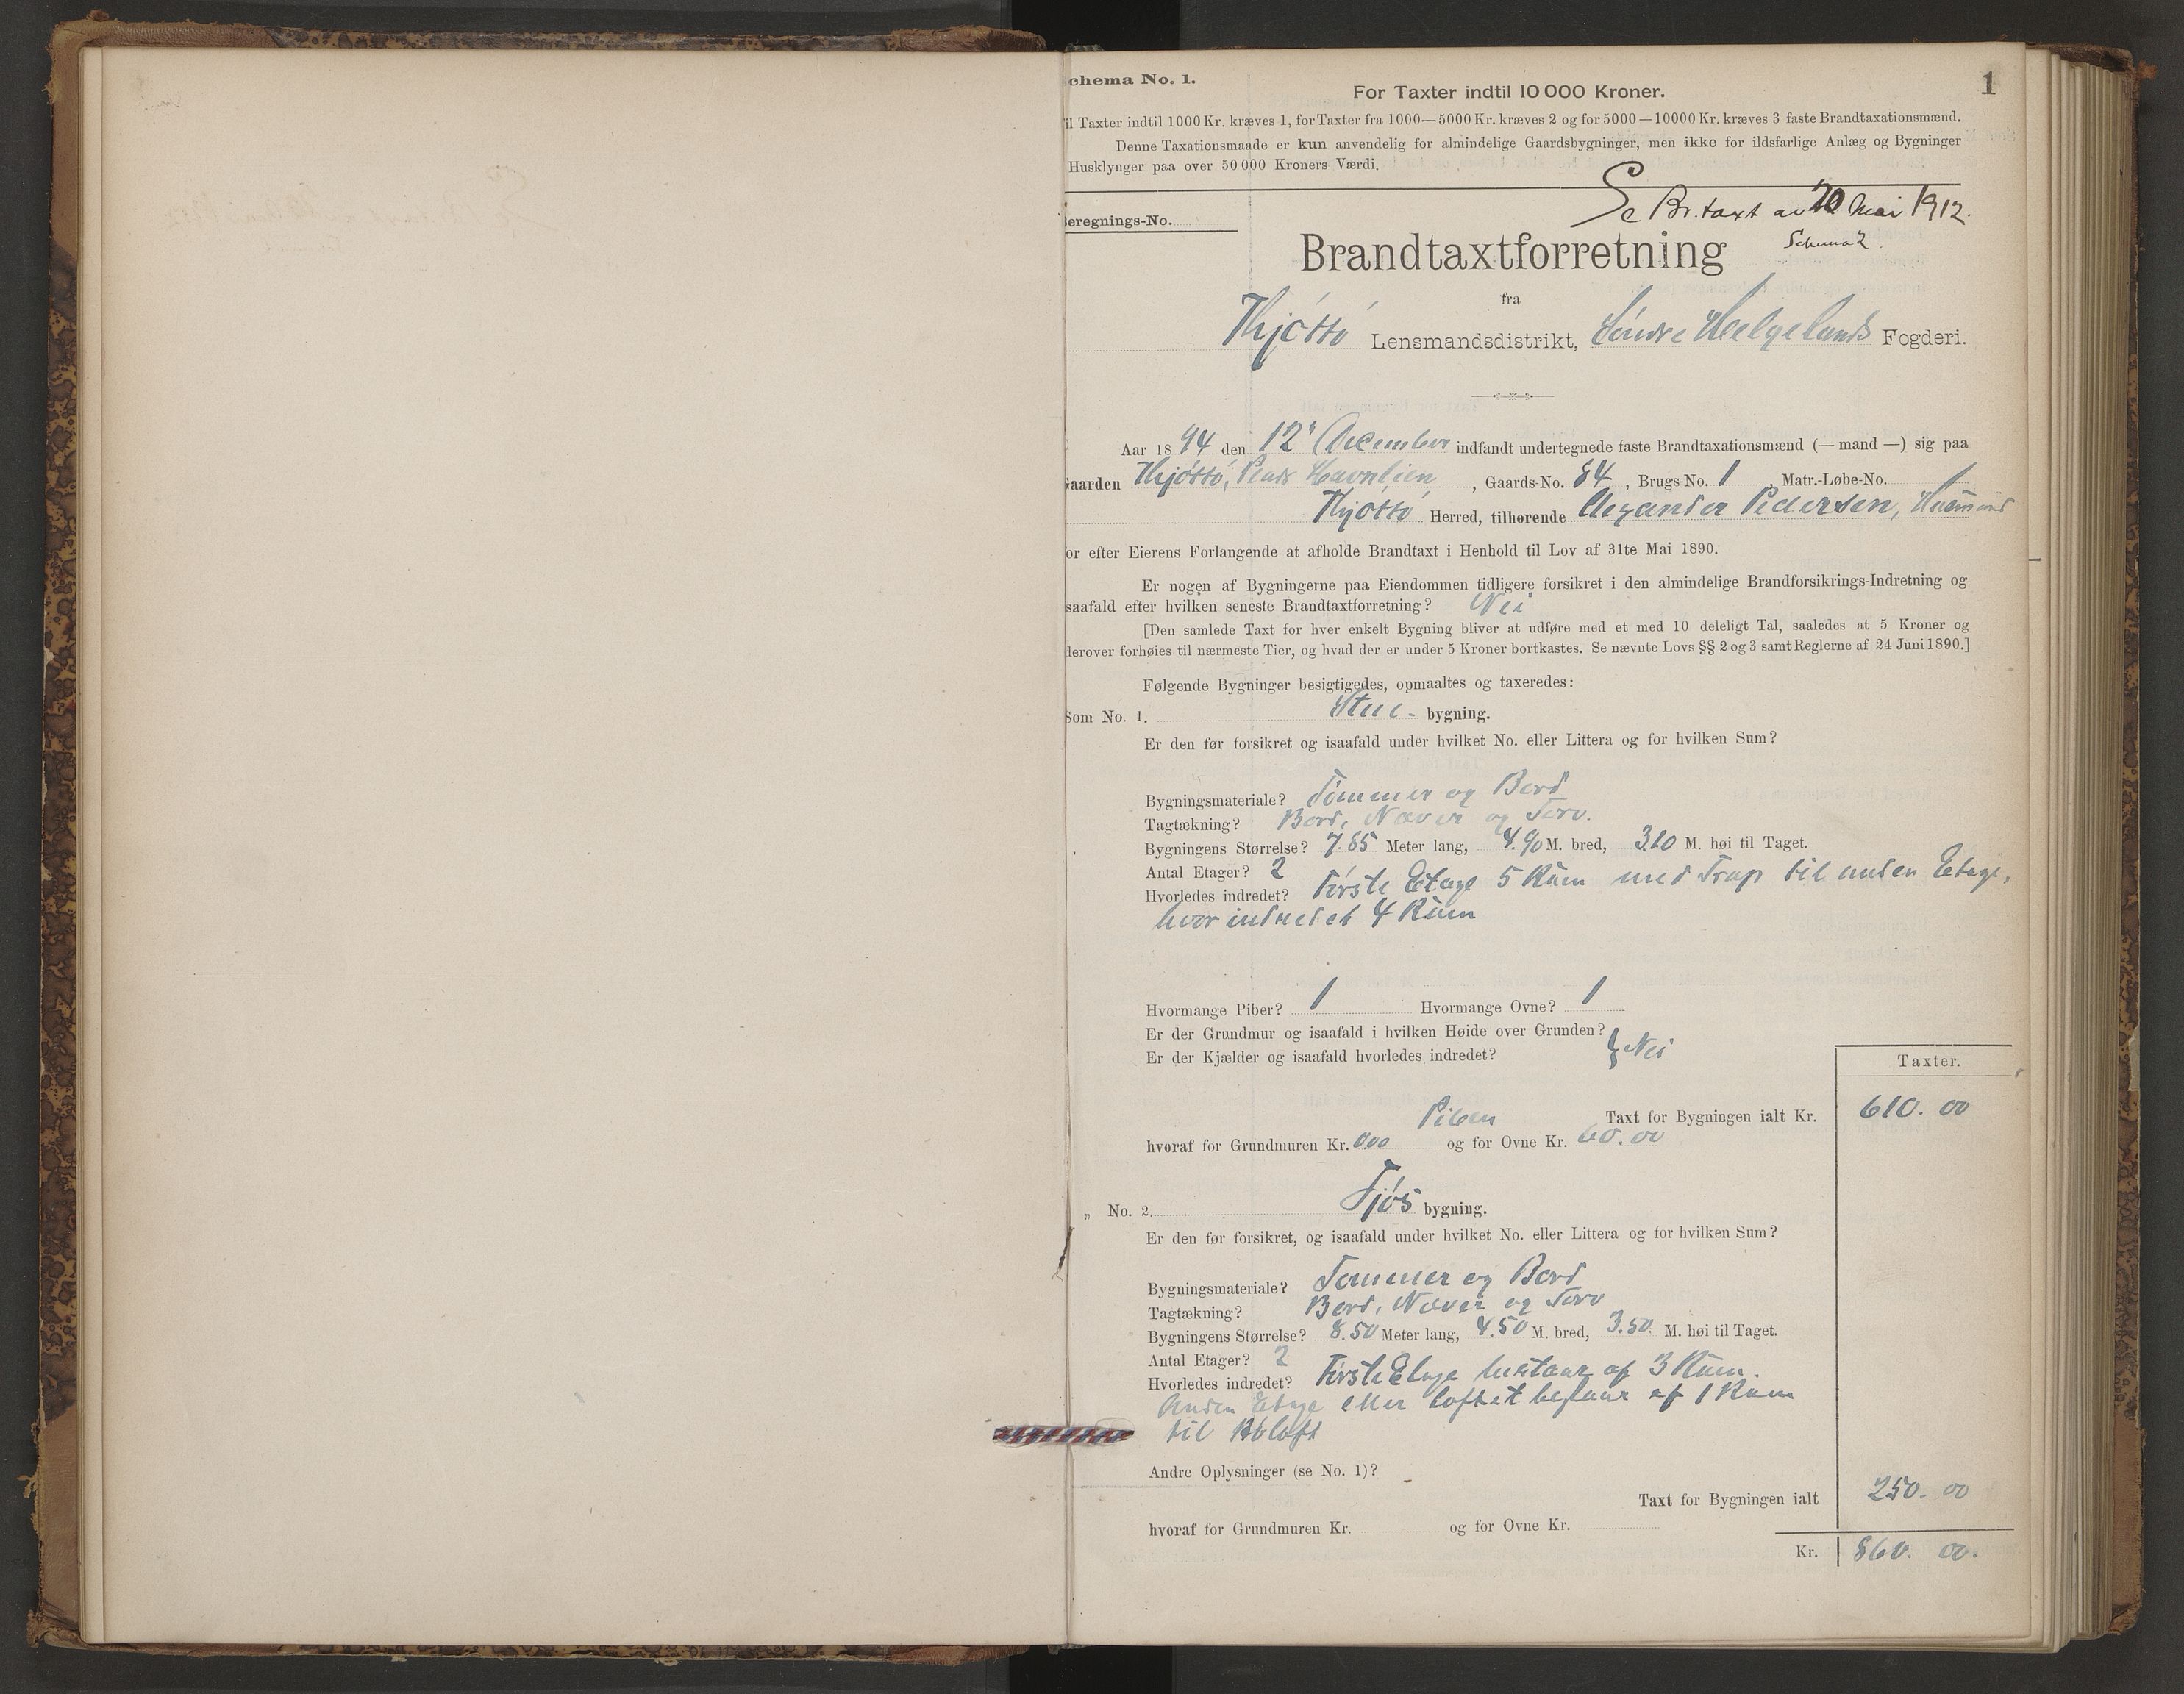 chema No. 1.
For Taxter indtil 10 000 Kroner.
1
il Taxter indtil 1000 Kr. kræves 1, for Taxter fra 1000—5000 Kr. kræves 2 og for 5000—10000 Kr. kræves 3 faste Brandtaxationsmænd.
Denne Taxationsmaade er kun anvendelig for almindelige Gaardsbygninger, men ikke for ildsfarlige Anlæg og Bygninger
Husklynger paa over 50 000 Kroners Værdi.
Se Br. taxt av 20 Mai 1912.
Schema 2.
Beregnings-No.
Brandtaxtforretning
fra
Thjøttø Lensmandsdistrikt, Søndre Helgelands Fogderi.
Aar 1894 den 12te December indfandt undertegnede faste Brandtaxationsmænd (— mand —) sig paa
Gaarden Thjøttø, Plads Havnlien, Gaards-No. 84, Brugs-No. 1, Matr.-Løbe-No.
Thjøttø Herred, tilhørende Alexander Pedersen, Husmand
or efter Eierens Forlangende at afholde Brandtaxt i Henhold til Lov af 31te Mai 1890.
Er nogen af Bygningerne paa Eiendommen tidligere forsikret i den almindelige Brandforsikrings-Indretning og
saafald efter hvilken seneste Brandtaxtforretning? Nei
[Den samlede Taxt for hver enkelt Bygning bliver at udføre med et med 10 deleligt Tal, saaledes at 5 Kroner og
derover forhøies til nærmeste Tier, og hvad der er under 5 Kroner bortkastes. Se nævnte Lovs §§ 2 og 3 samt Reglerne af 24 Juni 1890.]
Følgende Bygninger besigtigedes, opmaaltes og taxeredes:
Som No. 1. Stue- bygning.
Er den før forsikret og isaafald under hvilket No. eller Littera og for hvilken Sum?
Bygningsmateriale? Tømmer og Bord
Tagtækning? Bord, Næver og Torv.
Bygningens Størrelse? 7.85 Meter lang, 4.90 M. bred, 3.10 M. høi til Taget.
Antal Etager? 2
Hvorledes indredet? Første Etage 5 Rum med Trap til anden Etage,
hvor indredet 4 Rum
Hvormange Piber? 1 Hvormange Ovne? 1
Er der Grundmur og isaafald i hvilken Høide over Grunden?
Er der Kjælder og isaafald hvorledes indredet? } Nei
Taxter.
Taxt for Bygningen ialt Kr. 610. 00
Piben
hvoraf for Grundmuren Kr. 000 og for Ovne Kr. 60. 00
„ No. 2. Fjøs bygning.
Er den før forsikret, og isaafald under hvilket No. eller Littera og for hvilken Sum?
Bygningsmateriale? Tømmer og Bord
Tagtækning? Bord, Næver og Torv
Bygningens Størrelse? 8.50 Meter lang, 4.50 M. bred, 3.50 M. høi til Taget.
Antal Etager? 2
Hvorledes indredet? Første Etage bestaar af 3 Rum.
Anden Etage eller loftet bestaar af 1 Rum
til Høloft
Andre Oplysninger (se No. 1)? -
Taxt for Bygningen ialt 250. 00
hvoraf for Grundmuren Kr. og for Ovne Kr.
Kr. 860. 00.